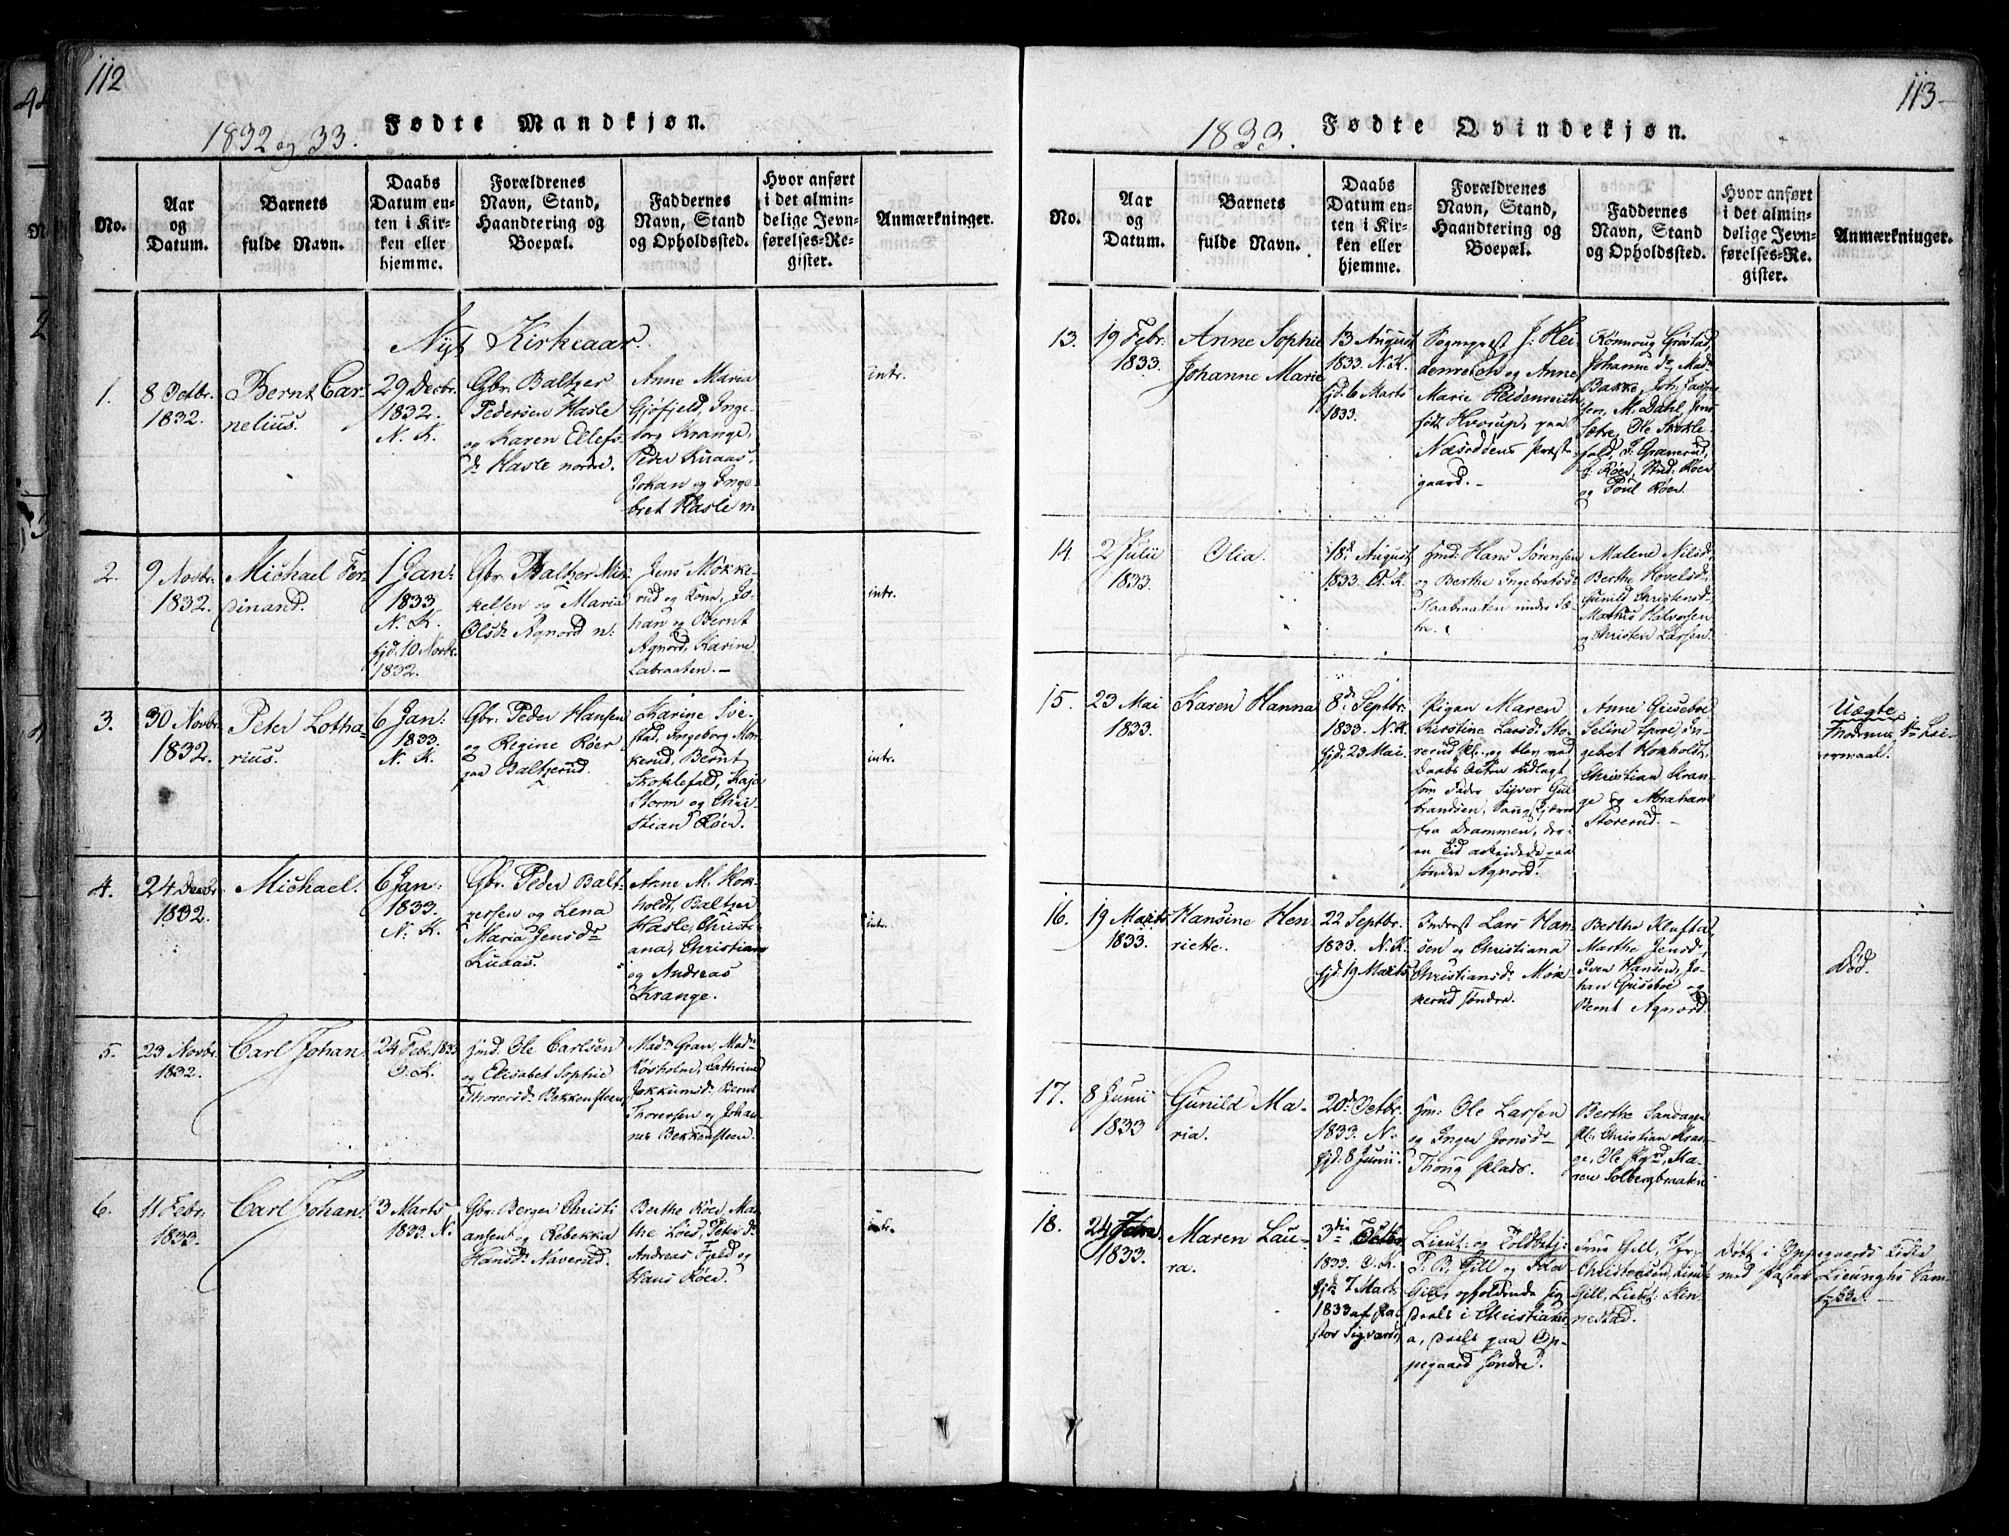 112
1832 og 33.
Fødte Mandkjøn.
No.
Aar
og
Datum.
Barnets
fulde Navn.
Daabs
Datum en-
ten i Kir-
ken eller
hjemme.
Forældrenes
Navn, Stand,
Haandtering og
Boepæl.
Faddernes
Navn, Stand
og Opholdssted.
Hvor anført
i det almin-
delige Jevn-
førelses-Re-
gister.
Anmærkninger.
Nyt Kirkeaar.
1.
8 Octbr.
1832.
Bernt Car-
nelius.
29 Decbr.
1832.
N. K.
Gbr. Baltzer
Pedersen Hasle
og Karen Ellefs
d. Hasle nordre.
Anne Maria
Gjøfjeld, Inge-
borg Krange,
Peder Knaas,
Johan og Inge-
bret Hasle n.
intr.
2.
9 Novbr.
1832.
Michael Fer-
dinand.
1 Jan:
1833.
N. K.
hjd. 10 Novb.
1832.
Gbr. Baltzer Mik-
kelsen og Maria
Olsd. Agnord n:
Jens Mokke-
rud og Kone, Jo-
han og Bernt
Agnord, Karine
Labraaten.
intr.
3.
30 Novbr.
1832.
Peter Lotha-
rius.
6 Jan:
1833.
N. K.
Gbr. Peder Hansen
og Regine Røer
paa Baltzerud.
Karine Sve-
stad, Ingeborg Mok-
kerud, Bernt
Skoklefald, Kaja
Storm og Chri-
stian Røer.
intr.
4.
24 Decbr.
1832.
Michael.
6 Jan:
1833.
N. K.
Gbr. Peder Balt-
zersen og Lena
Maria Jensd.
Knaas.
Anne M. Hok-
holdt, Baltzer
Hasle, Christi-
ana, Christian
og Andreas
Krange.
intr.
5.
23 Novbr.
1832.
Carl Johan
24 Feb. 1833
O. K.
Hmd. Ole Carlsen
og Elisabet Sophie
Thoresd. Bekkensteen
Mad. Gran, Mad.
Røsholm, Cathrine
Jokkumsd. Bernt
Thoresen og Johan-
nes Bekkensteen.
6.
11 Febr.
1833.
Carl Johan
3 Marts
1833. N.
Gbr. Berger Christi-
ansen og Rebekka
Hansd. Naverud.
Berthe Røer, Ma-
the Løes, Peter d.
Andreas Fjeld og
Hans Røer.
intr.
113
1833.
Fødte Qvindekjøn.
No.
Aar
og
Datum.
Barnets
fulde Navn.
Daabs
Datum en-
ten i Kir-
ken eller
hjemme.
Forældrenes
Navn, Stand,
Haandtering og
Boepæl.
Faddernes
Navn, Stand
og Opholdssted.
Hvor anført
i det almin-
delige Jevn-
førelses-Re-
gister.
Anmærkninger.
13.
19 Febr.
1833.
Anne Sophie
Johanne Marie
13 August
1833. N. K.
hjd. 6 Marts
1833.
Sognepræst J. Hei-
denreich og Anne
Marie Heidenreich
født Hvorup, paa
Næsoddens Præste-
gaard.
Rønnoug Grøstad
Johanne d. Mad.
Bakke, Joh:
M. Dahl, Jens
Sætre, Ole Skokle-
fald, J. Granerud,
Røer, Stud: Røer
og Poul Røer.
14
2 Julii
1833.
Olia.
18d August
1833. O. K.
Hmd: Hans Sørensen
og Berthe Ingebretsd.
Haabraaten under Sæ-
tre.
Malene Nilsd.
Berthe Hovelsd.
Gunild Christensd.
Mathis Halvorsen
og Christen Larsen.
15.
23 Mai
1833.
Karen Hanna
8d Septbr.
1833. N. K.
hjd. 23 Mai.
Pigen Maren
Kirstine Larsd. Sto-
rerud Pl. og blev ved
Daabs Acten udlagt
som Fader Sigver Gul-
brandsen, Saugskjærer
fra Drammen, der i
en Tid arbeidede paa
søndre Agnord.
Anne Gieseboe
Seline Sproe, In-
gebret Hokholdt,
Christian Kran-
ge og Abraham
Storerud.
Uægte
Moderens 1ste Lei-
ermaal.
16.
19 Marts
1833.
Hansine Hen-
riette.
22 Septbr.
1833. N. K.
hjd. 19 Marts
Inderst Lars Han-
sen og Christiana
Christiansd. Mok-
kerud søndre.
Berthe Klufte,
Marthe Jensd.
Even Hansen, Jo-
han Gieseboe og
Bernt Agnord.
Død.
17.
8 Junii
1833
Gunild Ma-
ria.
20d Octbr.
1833. N.
hjd: 8 Junii.
Hm: Ole Larsen
og Inger Jonsd.
Thong Plads.
Berthe Sandager
Pl. Christian Kran-
ge, Ole, Ma-
ren Solbergbraaten
18.
24
1833.
Maren Lau-
ra.
3die Octbr.
1833. O. K.
hjd. 7 Marts
1833 af Pa-
stor Sigvardt
Lieut: og Toldbetj:
P. B. Gill og Ida
Gill, opholdende sig
deels i Christiani-
a, deels paa Op-
pegaard søndre.
Gill, Jfr.
Christensen, Lieut
Gill, Lieut: Ken-
nestad.
Døbt i Oppegaards Kirke
med Pastor Lieunghs Sam-
tykke.